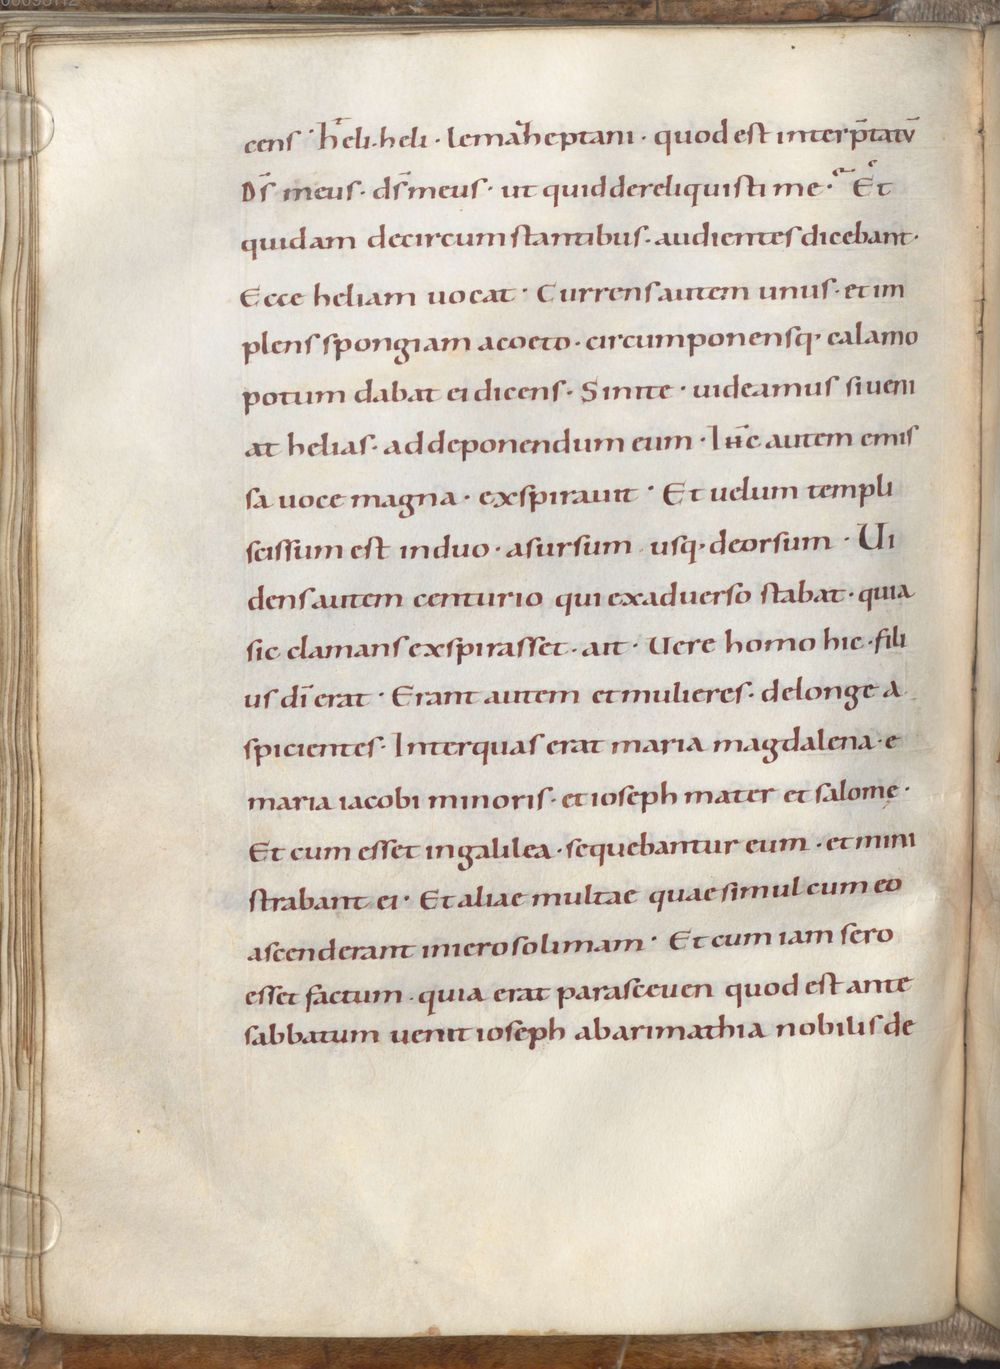 cens · heli · heli · lema heptani · quod est interp̄tatū
Ds̄ meus · ds̄ meus · ut quid dereliquisti me · Et
quidam decircumstantibus · audientes dicebant ·
Ecce heliam uocat · Currens autem unus · et im
plens spongiam acoeto · circumponensq· calamo
potum dabat ei dicens · Sinite · uideamus si ueni
at helias · ad deponendum eum · Ihc̄ autem emis
sa uoce magna · exspirauit · Et uelum templi
scissum est induo · asursum usq· deorsum · Ui
dens autem centurio qui exaduerso stabat · quia
sic clamans exspirasset · ait · Uere homo hic · fili
us dī erat · Erant autem et mulieres · delonge a
spicientes · Interquas erat maria magdalena · e
maria iacobi minoris · et ioseph mater et salome ·
Et cum esset ingalilea · sequebantur eum · et mini
strabant ei · Et aliae multae quae simul cum eo
ascenderant inierosolimam · Et cum iam sero
esset factum · quia erat parasceuen quod est ante
sabbatum uenit ioseph abarimathia nobilis de